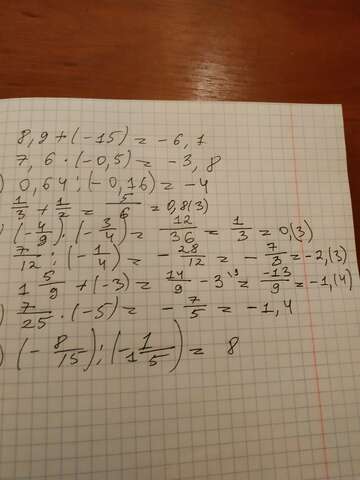 8,9+(-15)= -6,7
7,6·(-0,5)= -3,8
) 0,64:(-0,16)= -4
1/3 + 1/2 = 5/6 = 0,8(3)
) (-4/9)·(-3/4)= 12/36 = 1/3 = 0,(3)
7/12 : (-1/4)= -28/12 = -7/3 = -2,(3)
1 5/9 + (-3)= 14/9 - 3 = -13/9 = -1,(4)
) 7/25 ·(-5)= -7/5 = -1,4
) (-8/15):(-1/15)= 8